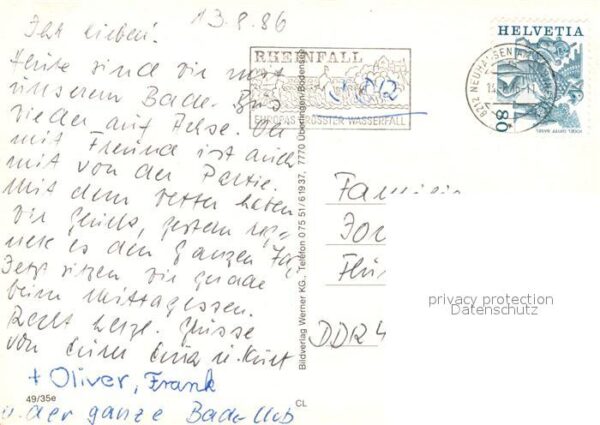 13.8.86
Ihr lieben!
Heute sind wir mit
unserem Bade-Bus
wieder auf Achse. Ein
mit Freund ist auch
mit von der Partie.
Mit dem Wetter haben
wir Glück, gestern reg-
nete es den ganzen Tag.
Jetzt sitzen wir gerade
beim Mittagessen.
Recht herzl. Grüsse
von
+ Oliver, Frank
u. der ganze Bade-Club
49/35e
CL
Bildverlag Werner KG., Telefon 0 75 51/6 19 37, 7770 Überlingen/Bodensee
RHEINFALL
EUROPAS GRÖSSTER WASSERFALL
HELVETIA
80
8212 NEUHAUSEN AM
Familie
DDR 4
privacy protection
Datenschutz